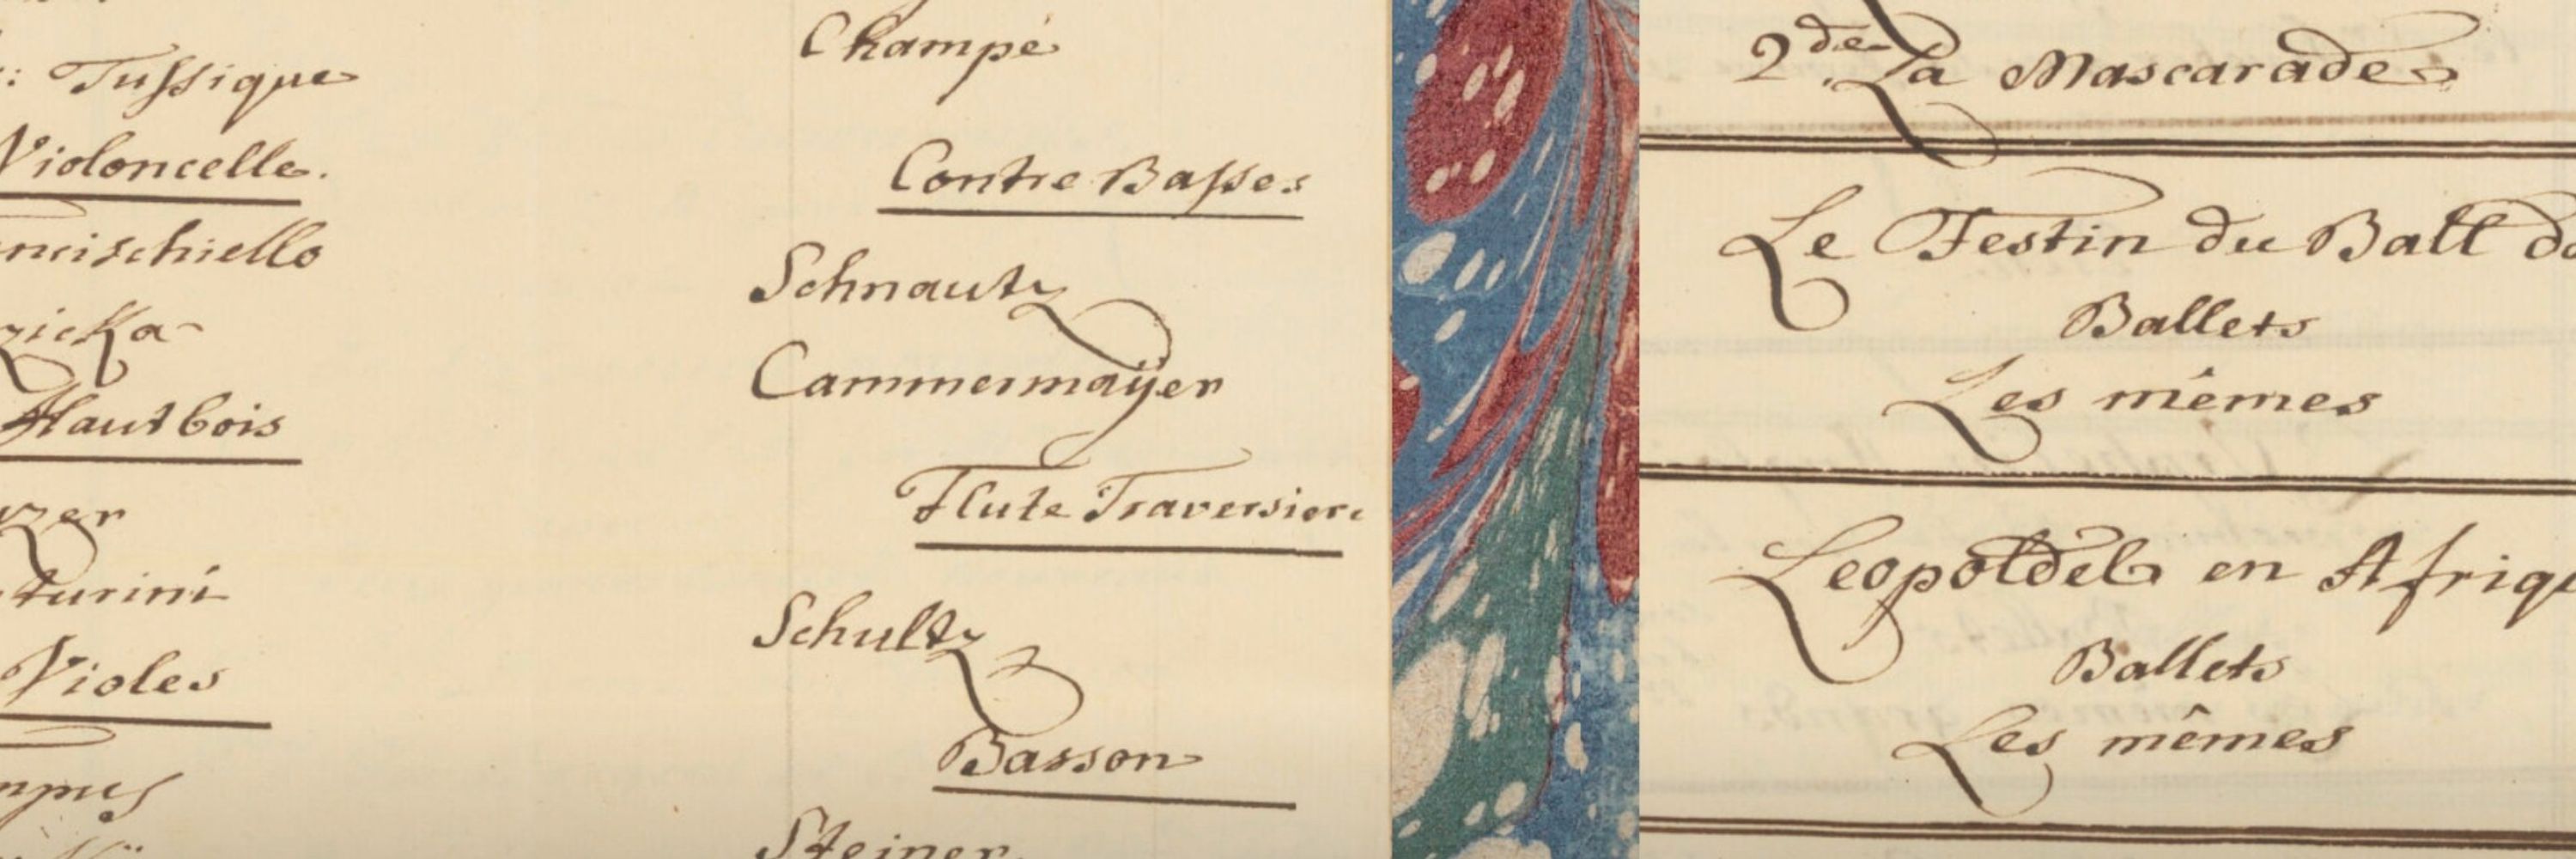 Tussique
Violoncelle.
Hautbois
Violes
Champé
Contre Basses
Schnautz
Cammermaÿer
Flute Traversiere
Schultz
Basson
Steiner
2.de La Mascarade
Le Festin du Ball
Ballets
Les mêmes
Leopoldel en
Ballets
Les mêmes